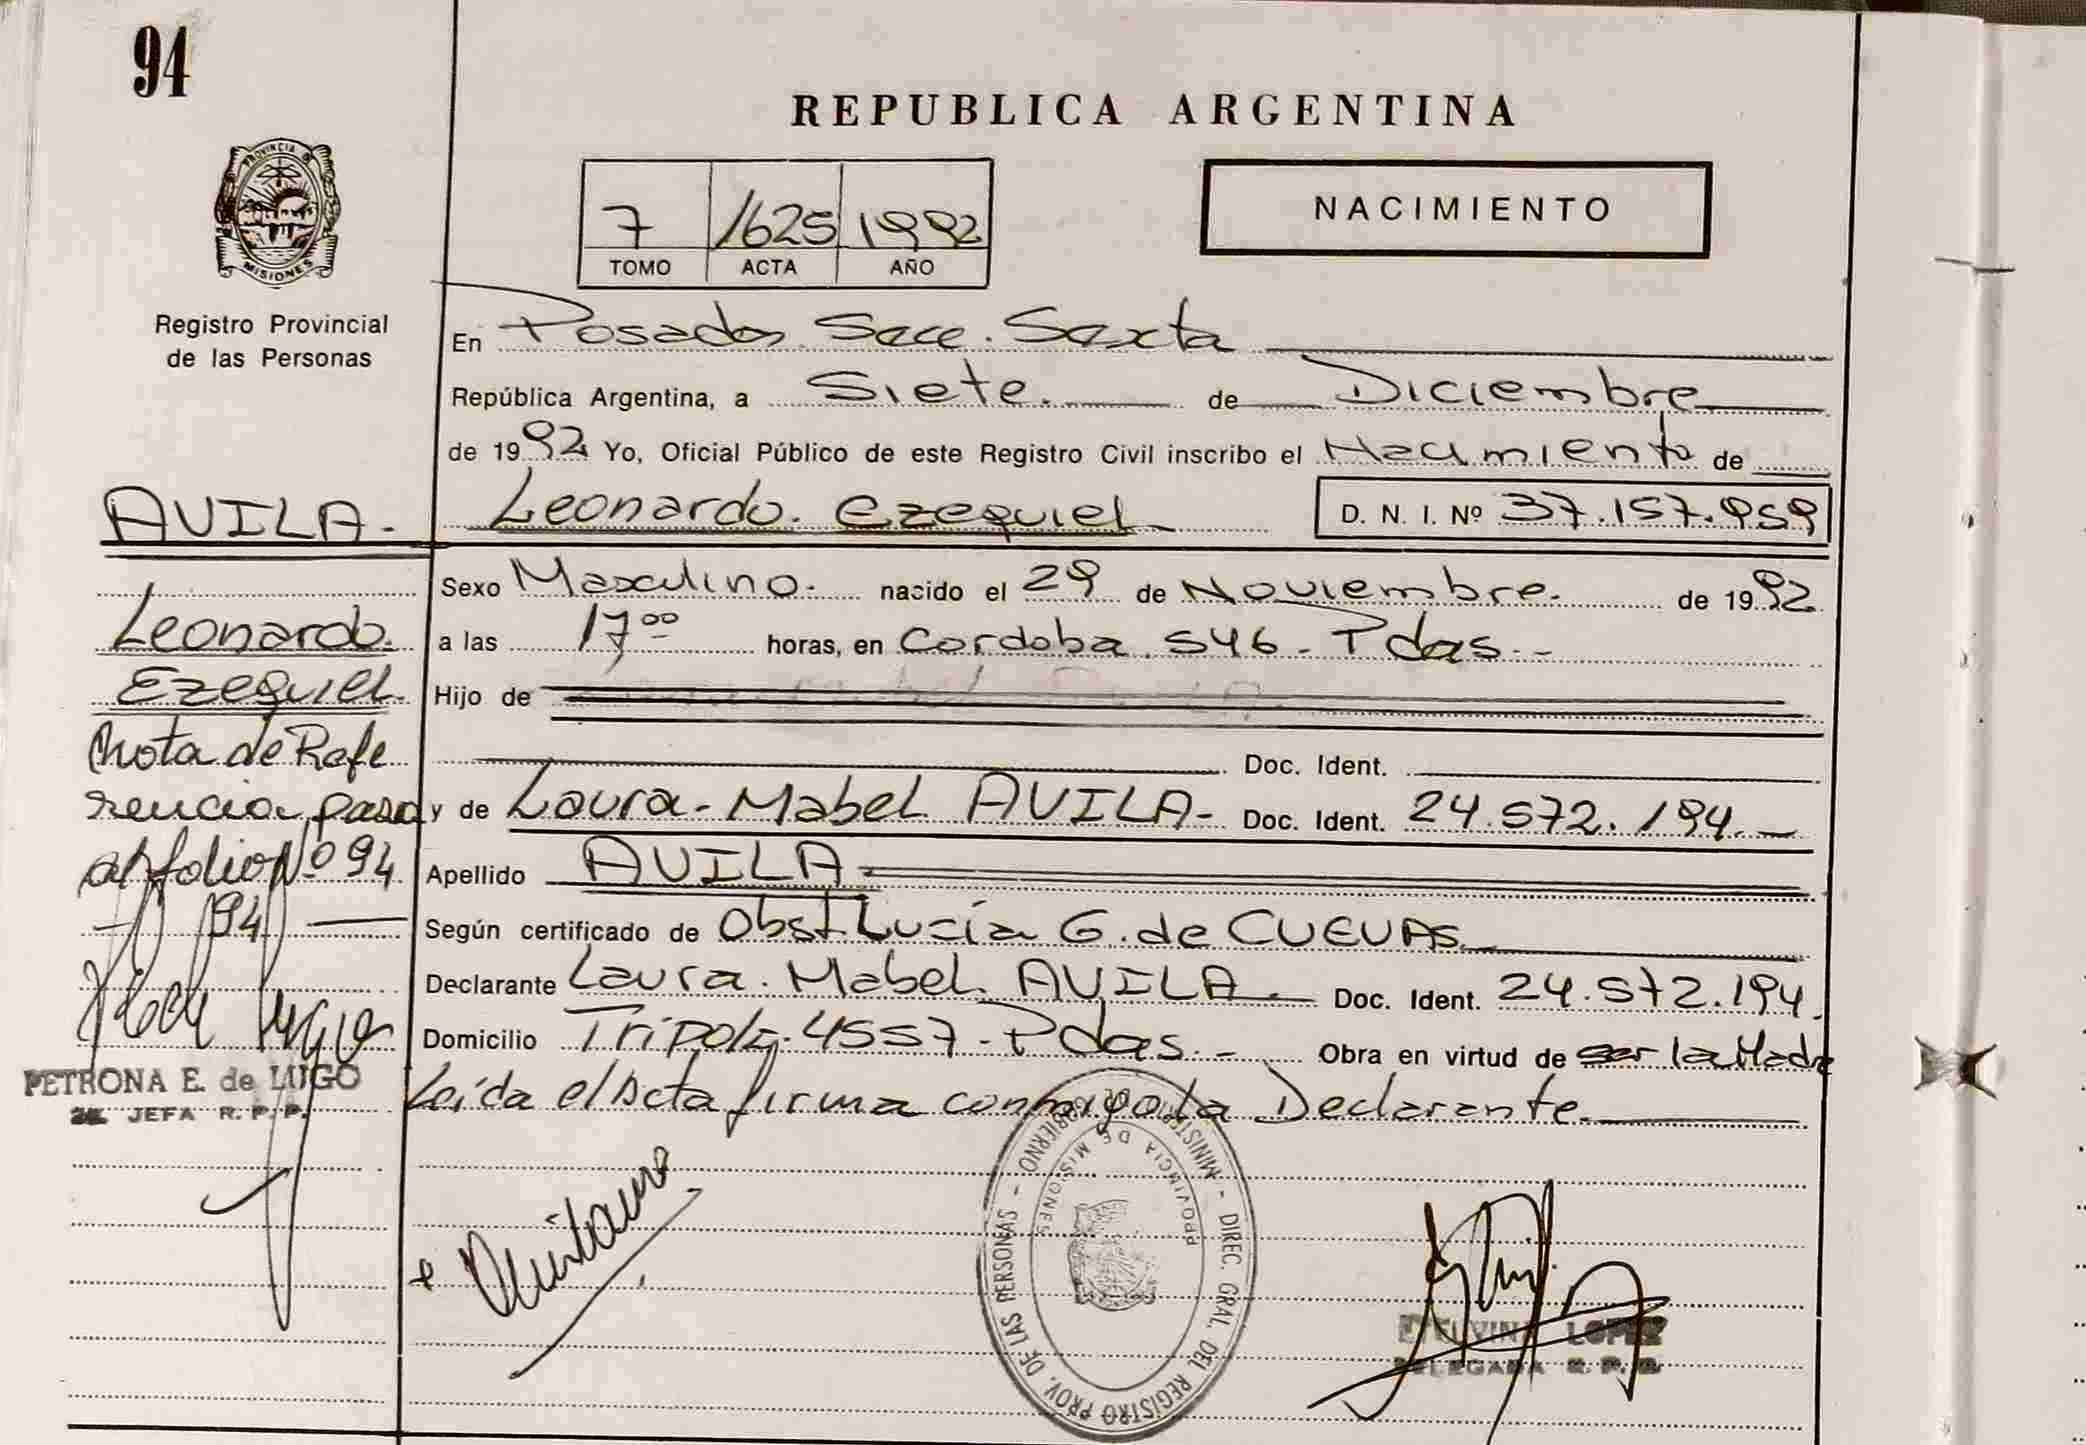 94
REPUBLICA ARGENTINA
PROVINCIA D
MISIONES
Registro Provincial
de las Personas
7 1625 1992
TOMO ACTA AÑO
NACIMIENTO
En Posadas Secc. Sexta
República Argentina, a Siete. de Diciembre
de 1992 Yo, Oficial Público de este Registro Civil inscribo el Nacimiento de
AVILA.- Leonardo. Ezequiel D. N. I. Nº 37.157.959
Sexo Masculino. nacido el 29 de Noviembre. de 1992
Leonardo.
a las 17⁰⁰ horas, en Cordoba 546 - Pdas.-
Ezequiel.
Hijo de
Nota de Refe
Doc. Ident.
rencia pasa
y de Laura - Mabel AVILA- Doc. Ident. 24.572.194.-
al folio Nº 94
Apellido AVILA-
94
Según certificado de Obst. Lucía G. de CUEVAS
Declarante Laura. Mabel. AVILA. Doc. Ident. 24.572.194.
Domicilio Tripoli. 4557 - Pdas.- Obra en virtud de ser la Madre
PETRONA E. de LUGO
JEFA R. P. P.
Leída el Acta firma conmigo la Declarante.
MINISTER DE GOBIERNO - DIREC. GRAL. DEL REGISTRO PROV. DE LAS PERSONAS -
PROVINCIA DE MISIONES
LOPEZ
DELEGADA R. P. P.